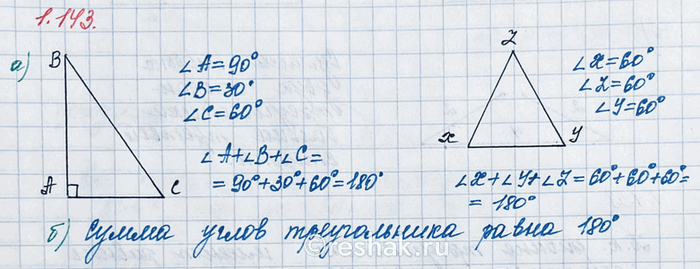 1.143.
а) B
∠A=90°
∠B=30°
∠C=60°
∠A+∠B+∠C=
=90°+30°+60°=180°
A C
Z
∠X=60°
∠Z=60°
∠Y=60°
X Y
∠X+∠Y+∠Z=60°+60°+60°=
=180°
б) Сумма углов треугольника равна 180°
©reshak.ru